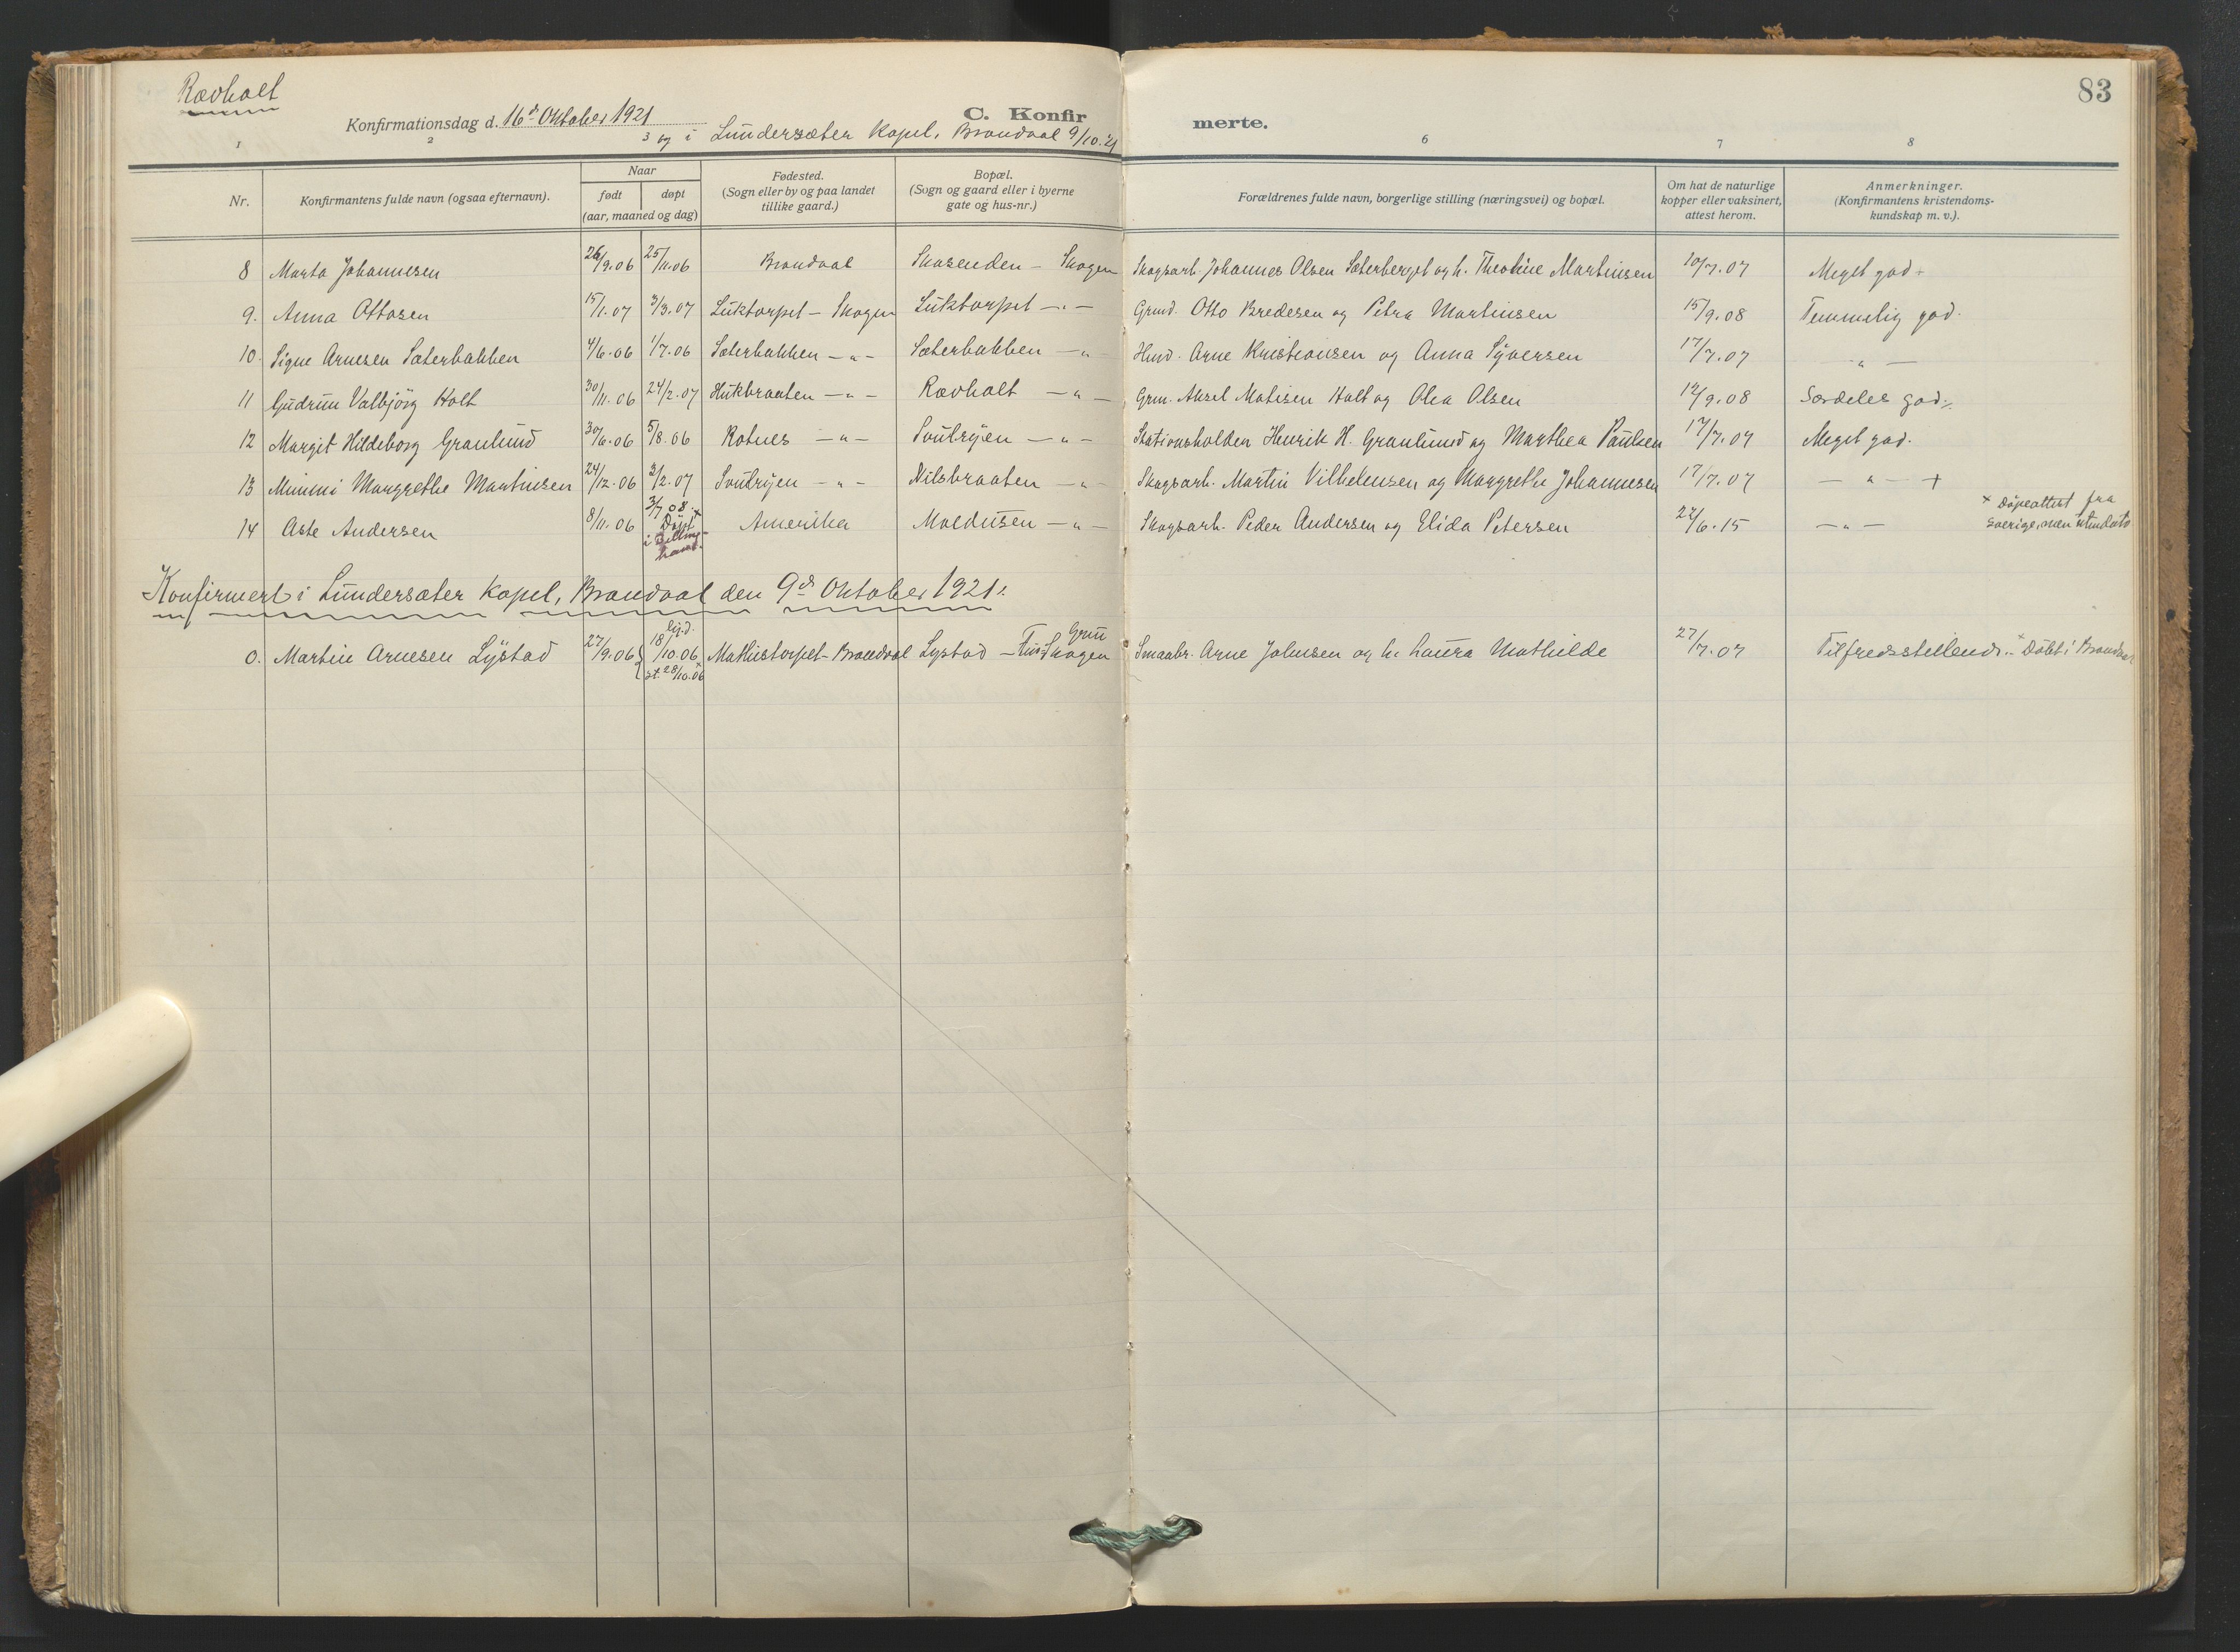 Rævholt
83
Konfirmationsdag d. 16de Oktober 1921
C. Konfirmerte.
og i Lundersæter kapel, Brandval 9/10.21
1 2 3 6 7 8
Nr. Konfirmantens fulde navn (ogsaa efternavn). Naar født døpt (aar, maaned og dag) Fødested. (Sogn eller by og paa landet tillike gaard.) Bopæl. (Sogn og gaard eller i byerne gate og hus-nr.) Forældrenes fulde navn, borgerlige stilling (næringsvei) og bopæl. Om hat de naturlige kopper eller vaksinert, attest herom. Anmerkninger. (Konfirmantens kristendomskundskap m. v.).
8 Marta Johannesen 26/9.06 25/11.06 Brandval Skasenden - Skogen Skogsarb. Johannes Olsen Sæterberget og h. Theoline Martinsen 10/7.07 Meget god
9. Anna Ottosen 15/1.07 3/3.07 Luktorpet - Skogen Luktorpet - " - Grmd. Otto Bredesen og Petra Martinsen 15/9.08 Temmelig god.
10. Signe Arnesen Sæterbakken 4/6.06 1/7.06 Sæterbakken - " - Sæterbakken - " - Hmd. Arne Kristiansen og Anna Syversen 17/7.07 - " -
11 Gudrun Valbjörg Holt 30/11.06 24/2.07 Hukbraaten - " - Rævholt - " - Grm. Aksel Matisen Holt og Olea Olsen 12/9.08 Særdeles god
12 Margit Hildeborg Granlund 30/6.06 5/8.06 Rotnes - " - Svulryen - " - Stationsholder Henrik H. Granlund og Marthea Paulsen 17/7.07 Meget god.
13 Mimmi Margrethe Martinsen 24/12.06 3/2.07 Svulryen - " - Nilsbraaten - " - Skogsarb. Martin Vilhelmsen og Margrethe Johannesen 17/7.07 - " - +
14 Aste Andersen 8/11.06 3/7 08 x Döpt i Bellingham. Amerika Moldusen - " - Skogsarb. Peder Andersen og Elida Petersen 22/6.15 - " - x Döpeattest fra Sverige, men uten dato
Konfirmert i Lundersæter kapel, Brandval den 9de Oktober 1921:
0. Martin Arnesen Lystad 27/9.06 hj.d. 18/10.06 st. 28/10.06 x Mathistorpet - Brandval Lystad - Skogen Smaabr. Arne Johnsen og h. Laura Mathilde 27/7.07 Tilfredsstillende. x Döbt i Brandval